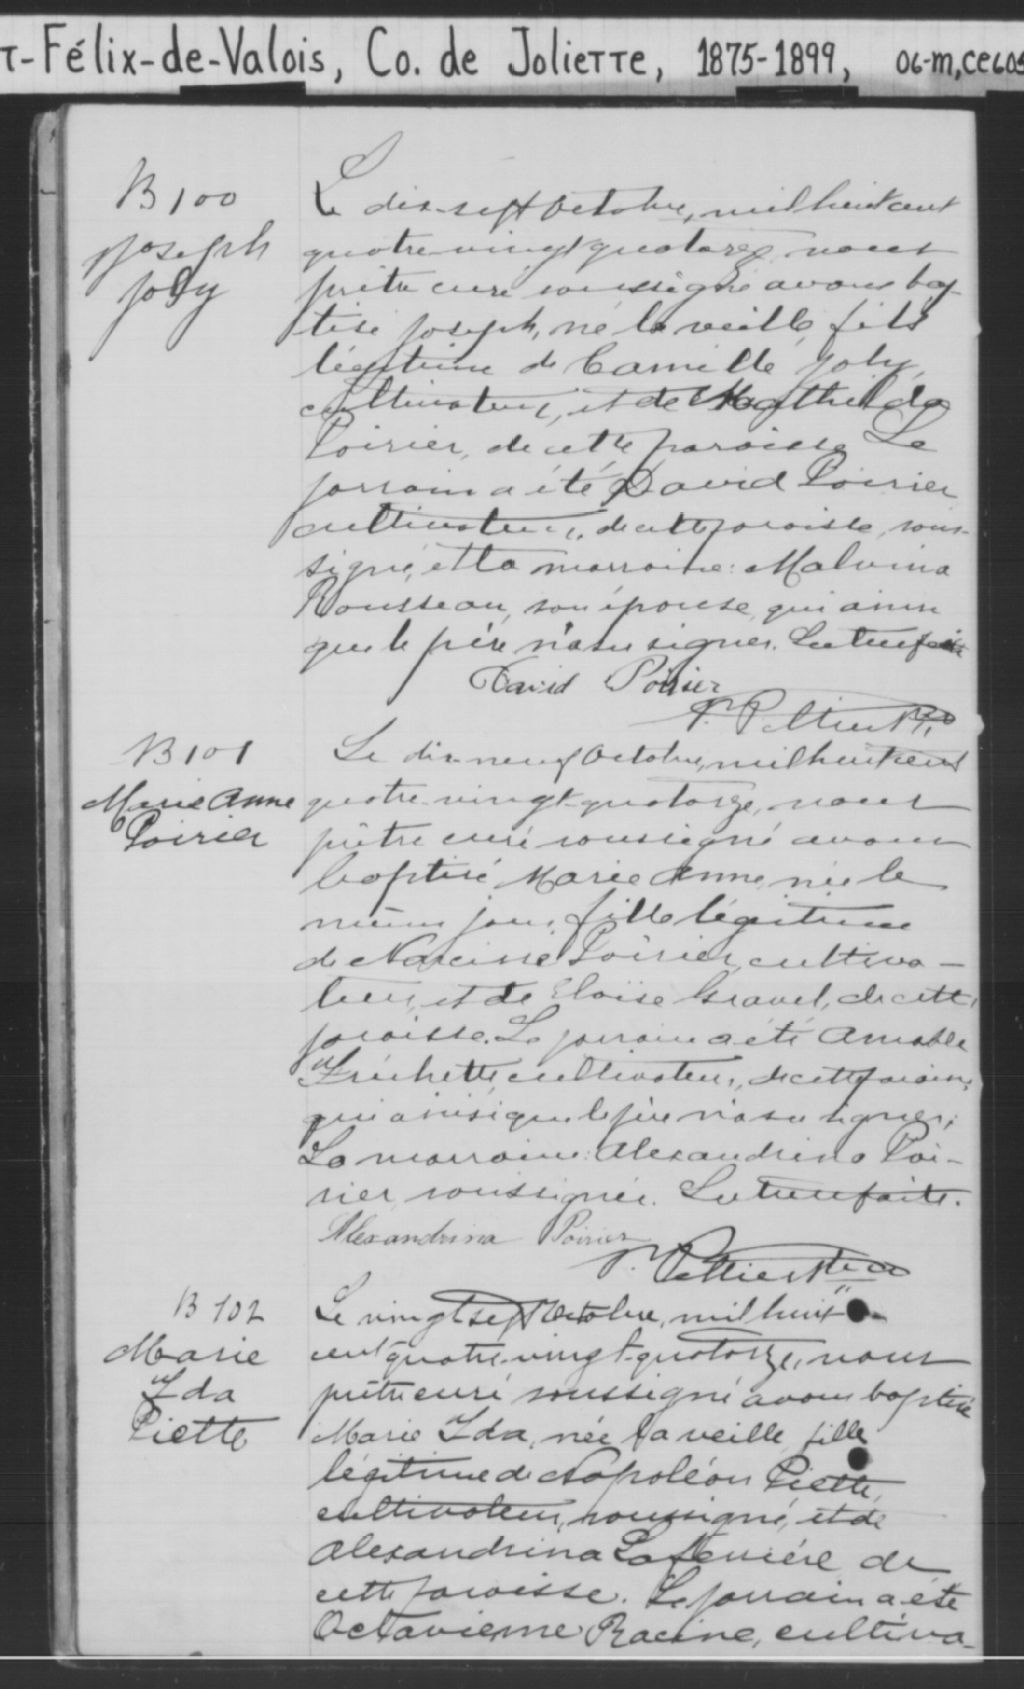 T-Félix-de-Valois, Co. de Joliette, 1875-1899, 06-M,CE605
B 100
Joseph
Joly
Le dix-sept Octobre, mil huit cent
quatre-vingt quatorze, nous
prêtre curé soussigné avons bap-
tisé Joseph, né la veille, fils
légitime de Camille Joly,
cultivateur, et de Mathilda
Poirier, de cette paroisse. Le
parrain a été David Poirier
cultivateur, de cette paroisse, sous-
signé, et la marraine: Malvina
Rousseau, son épouse, qui ainsi
que le père n'a su signer. Lecture faite
David Poirier
P. Pelletier Ptre
B 101
Marie Anne
Poirier
Le dix-neuf Octobre, mil huit cent
quatre-vingt-quatorze, nous
prêtre curé soussigné avons
baptisé Marie Anne, née le
même jour, fille légitime
de Narcisse Poirier, cultiva-
teur, et de Eloïse Gravel, de cette
paroisse. Le parrain a été Amable
Fréchette, cultivateur, de cette paroisse,
qui ainsi que le père n'a su signer;
La marraine: Alexandrina Poi-
rier soussignée. Lecture faite.
Alexandrina Poirier
P. Pelletier Ptre
B 102
Marie
Ida
Piette
Le vingt sept Octobre, mil huit
cent quatre-vingt-quatorze, nous
prêtre curé soussigné avons baptisé
Marie Ida, née la veille, fille
légitime de Napoléon Piette,
cultivateur, soussigné, et de
Alexandrina Laferrière de
cette paroisse. Le parrain a été
Octavienne Racine, cultiva-